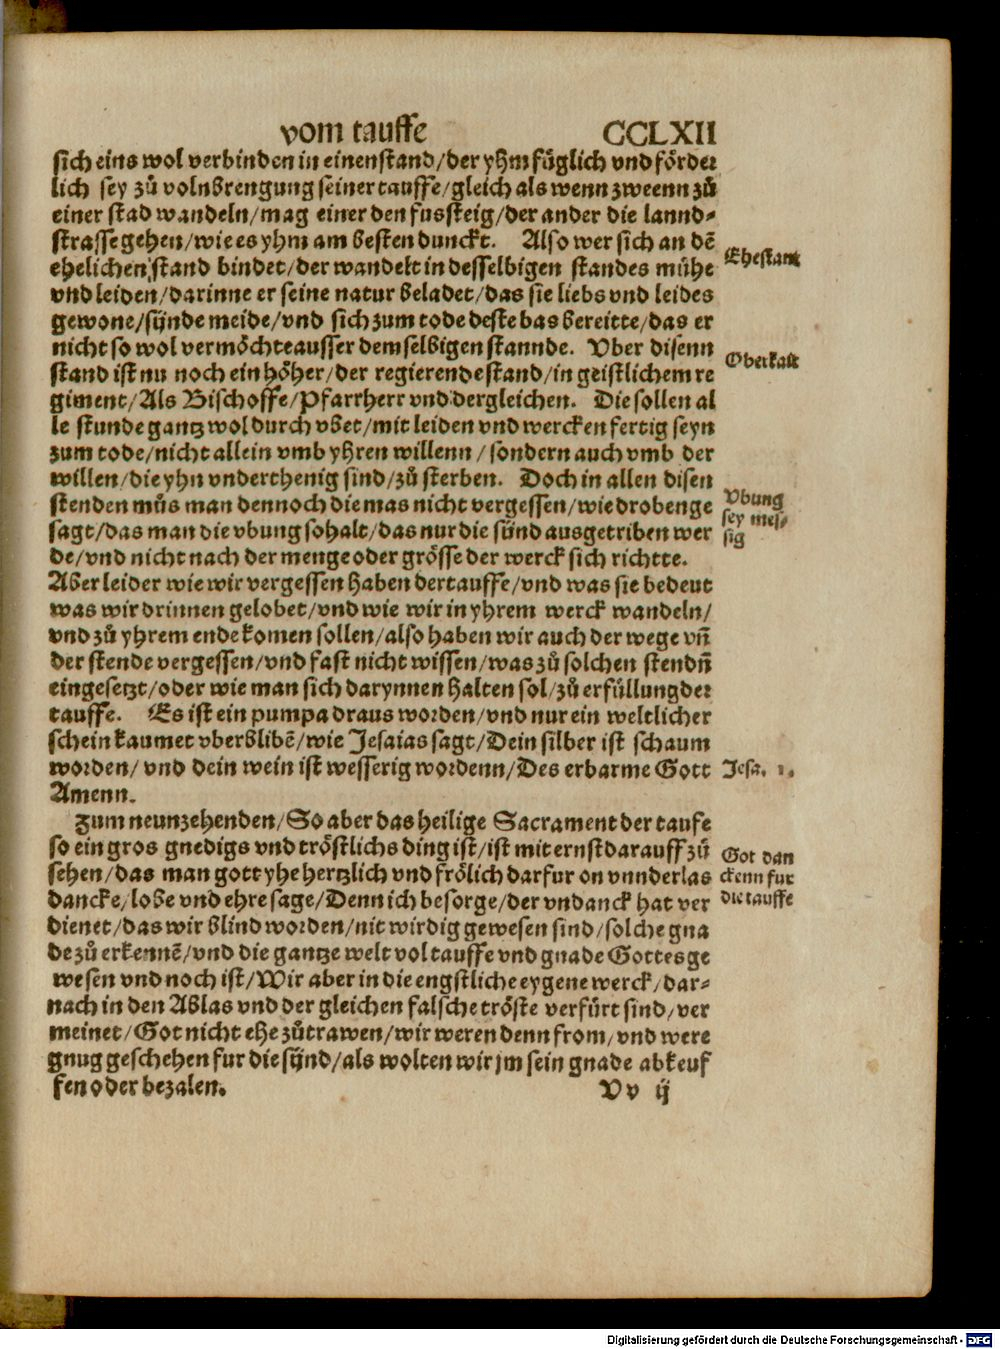 vom tauffe CCLXII
sich eins wol verbinden in einen stand/der yhm füglich vnd förder
lich sey zů volnbrengung seiner tauffe/gleich als wenn zween zů
einer stad wandeln/mag einer den fussteig/der ander die lannd⸗
strasse gehen/wie es yhm am besten dunckt. Also wer sich an dē
ehelichen stand bindet/der wandelt in desselbigen standes mühe
Ehestant
vnd leiden/darinne er seine natur beladet/das sie liebs vnd leides
gewone/sünde meide/vnd sich zum tode deste bas bereitte/das er
nicht so wol vermöchte ausser dem selbigen stannde. Vber disenn
Oberkait
stand ist nu noch ein höher/der regierende stand/in geistlichem re
giment/Als Bischoffe/Pfarrherr vnd dergleichen. Die sollen al
le stunde gantz wol durch vbet/mit leiden vnd wercken fertig seyn
zum tode/nicht allein vmb yhren willenn/sondern auch vmb der
willen/die yhn vnderthenig sind/zů sterben. Doch in allen disen
stenden můs man dennoch die mas nicht vergessen/wie droben ge
Vbung
sey mes⸗
sig
sagt/das man die vbung so halt/das nur die sünd ausgetriben wer
de/vnd nicht nach der menge oder grösse der werck sich richtte.
Aber leider wie wir vergessen haben der tauffe/vnd was sie bedeut
was wir drinnen gelobet/vnd wie wir in yhrem werck wandeln/
vnd zů yhrem ende komen sollen/also haben wir auch der wege vn̄
der stende vergessen/vnd fast nicht wissen/was zů solchen stendn̄
eingesetzt/oder wie man sich darynnen halten sol/zů erfüllung der
tauffe. Es ist ein pumpa draus worden/vnd nur ein weltlicher
schein kaumet vberblibē/wie Jesaias sagt/Dein silber ist schaum
worden/vnd dein wein ist wesserig wordenn/Des erbarme Gott
Jesa. 1.
Amenn.
Zum neunzehenden/So aber das heilige Sacrament der taufe
so ein gros gnedigs vnd tröstlichs ding ist/ist mit ernst darauff zů
Got dan
ckenn fur
die tauffe
sehen/das man gott yhe hertzlich vnd frölich darfur on vnnderlas
dancke/lobe vnd ehre sage/Denn ich besorge/der vndanck hat ver
dienet/das wir blind worden/nit wirdig gewesen sind/solche gna
de zů erkennē/vnd die gantze welt vol tauffe vnd gnade Gottes ge
wesen vnd noch ist/Wir aber in die engstliche eygene werck/dar⸗
nach in den Ablas vnd der gleichen falsche tröste verfürt sind/ver
meinet/Got nicht ehe zůtrawen/wir weren denn from/vnd were
gnug geschehen fur die sünd/als wolten wir jm sein gnade abkeuf
fen oder bezalen. Vv ij
Digitalisierung gefördert durch die Deutsche Forschungsgemeinschaft - DFG